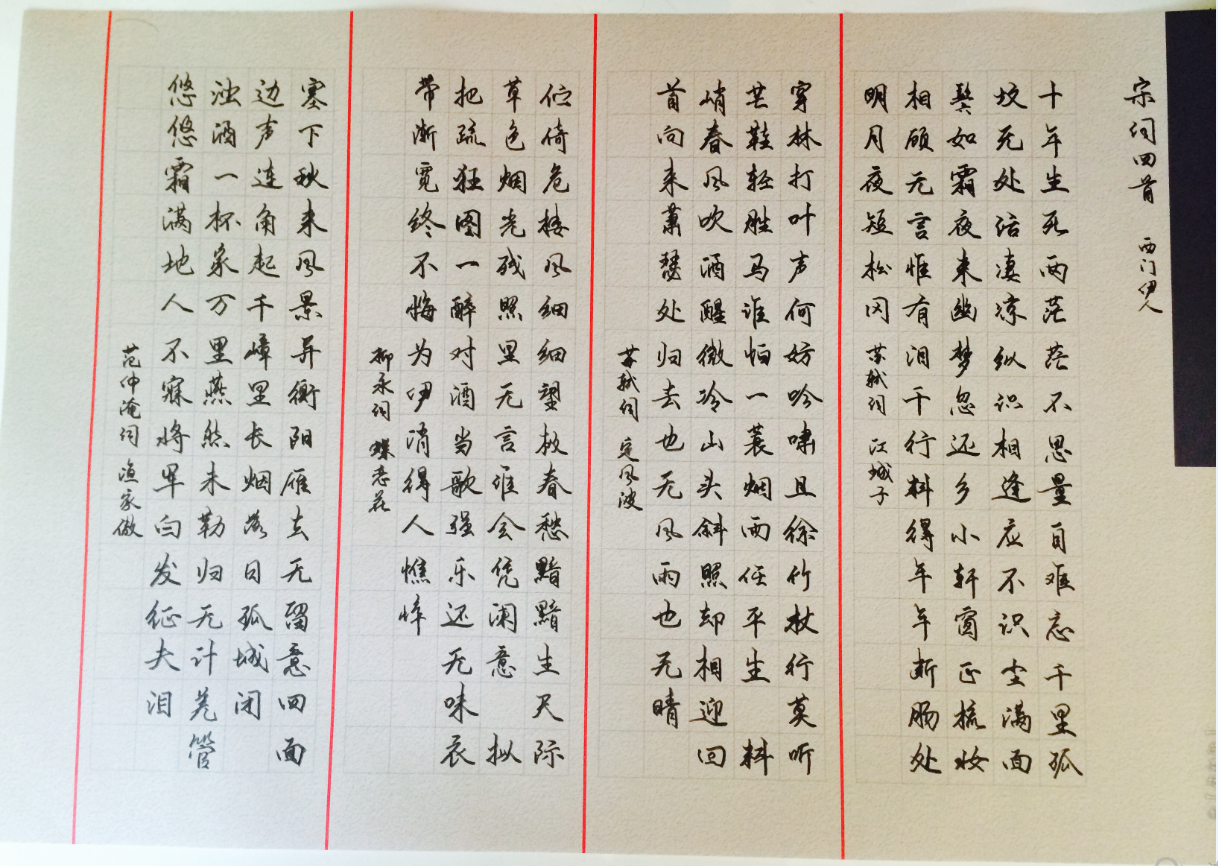 宋词四首 西门伊人
十年生死两茫茫不思量自难忘千里孤
坟无处话凄凉纵识相逢应不识尘满面
鬓如霜夜来幽梦忽还乡小轩窗正梳妆
相顾无言惟有泪千行料得年年断肠处
明月夜短松冈 苏轼词 江城子
穿林打叶声何妨吟啸且徐竹杖行莫听
芒鞋轻胜马谁怕一蓑烟雨任平生 料
峭春风吹酒醒微冷山头斜照却相迎回
首向来萧瑟处归去也无风雨也无晴
苏轼词 定风波
伫倚危楼风细细望极春愁黯黯生天际
草色烟光残照里无言谁会凭阑意 拟
把疏狂图一醉对酒当歌强乐还无味衣
带渐宽终不悔为伊消得人憔悴
柳永词 蝶恋花
塞下秋来风景异衡阳雁去无留意四面
边声连角起千嶂里长烟落日孤城闭
浊酒一杯家万里燕然未勒归无计羌管
悠悠霜满地人不寐将军白发征夫泪
范仲淹词 渔家傲